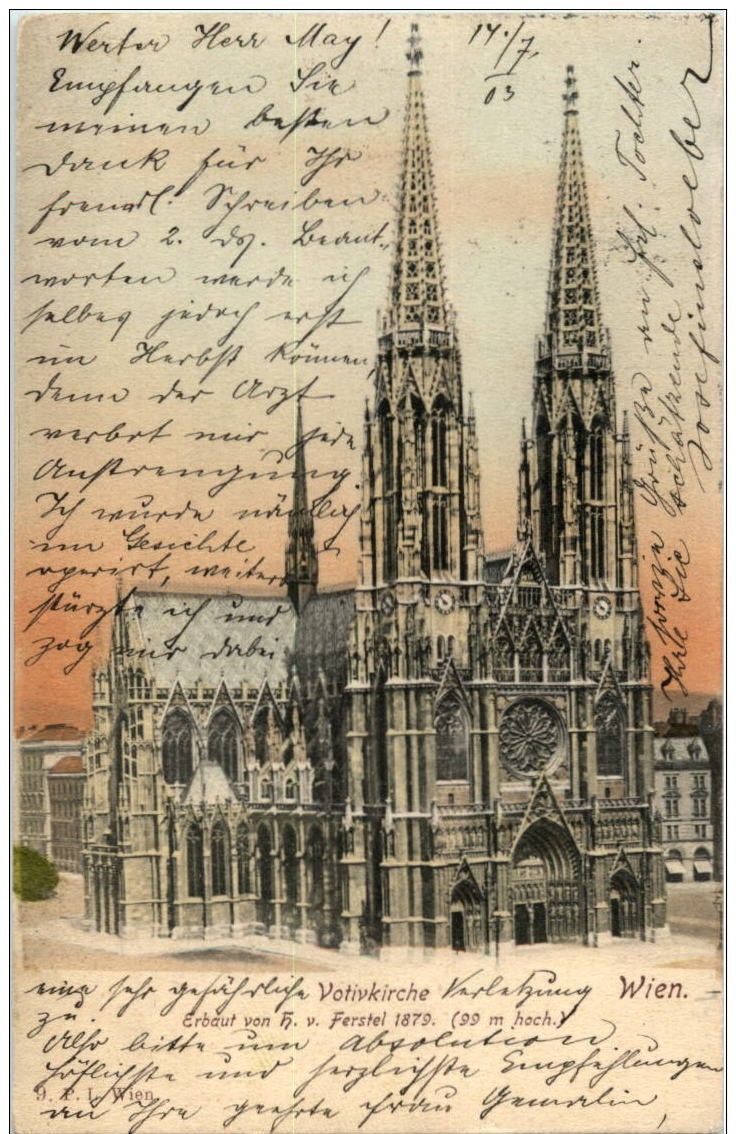 Werter Herr May!
14./7.
03
Empfangen Sie
meinen besten
Dank für Ihr
freundl. Schreiben
vom 2. ds. Beant-
worten werde ich
selbes jedoch erst
im Herbst können,
denn der Arzt
verbot mir jede
Anstrengung.
Ich wurde nämlich
im Gesichte
operirt, weiters
stürzte ich und
zog mir dabei
eine sehr gefährliche Verletzung
zu.
Votivkirche Wien.
Erbaut von H. v. Ferstel 1879. (99 m hoch.)
Also bitte um Absolution.
Höflichste und herzlichste Empfehlungen
9. P. I. Wien
an Ihre geehrte Frau Gemalin,
Grüße an Frl. Tochter.
Ihre Sie schätzende
Josefine